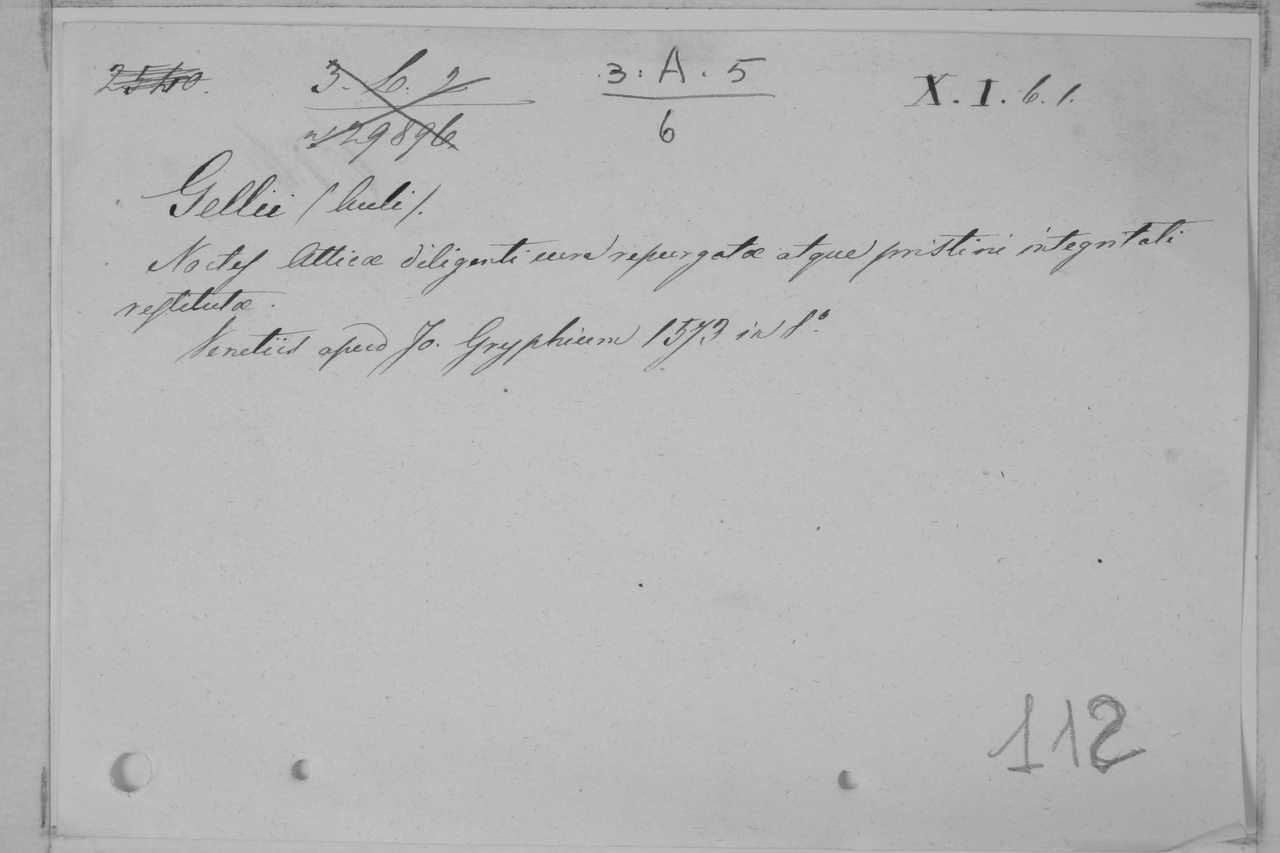 2540.
3. C. 2
n 29896
3 : A . 5
6
X . I . 6. 1.
Gellii (Auli).
Noctes Atticæ diligenti cura repurgatæ atque pristini integritati
restitutæ.
Venetiis apud Jo. Gryphium 1573 in 8.º
112